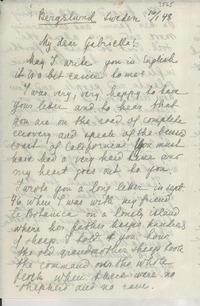 Bergslund Sweden 14/1 48
My dear Gabriella!
May I write you in English
it is a bit easier to me.
I was very very happy to have
your letter and to hear that
you are on the road of complete
recovery and speak of the beau
coast of California. You must
have had a very hard time and
my heart goes out to you.
I wrote you a long letter in sept
46 when I was with my friend
la Botanica on a lonely island
where her father keeps hundreds
of sheep. I told you how
the old grandmother sheep took
the command over the whole
flock when there were no
shepherd and no